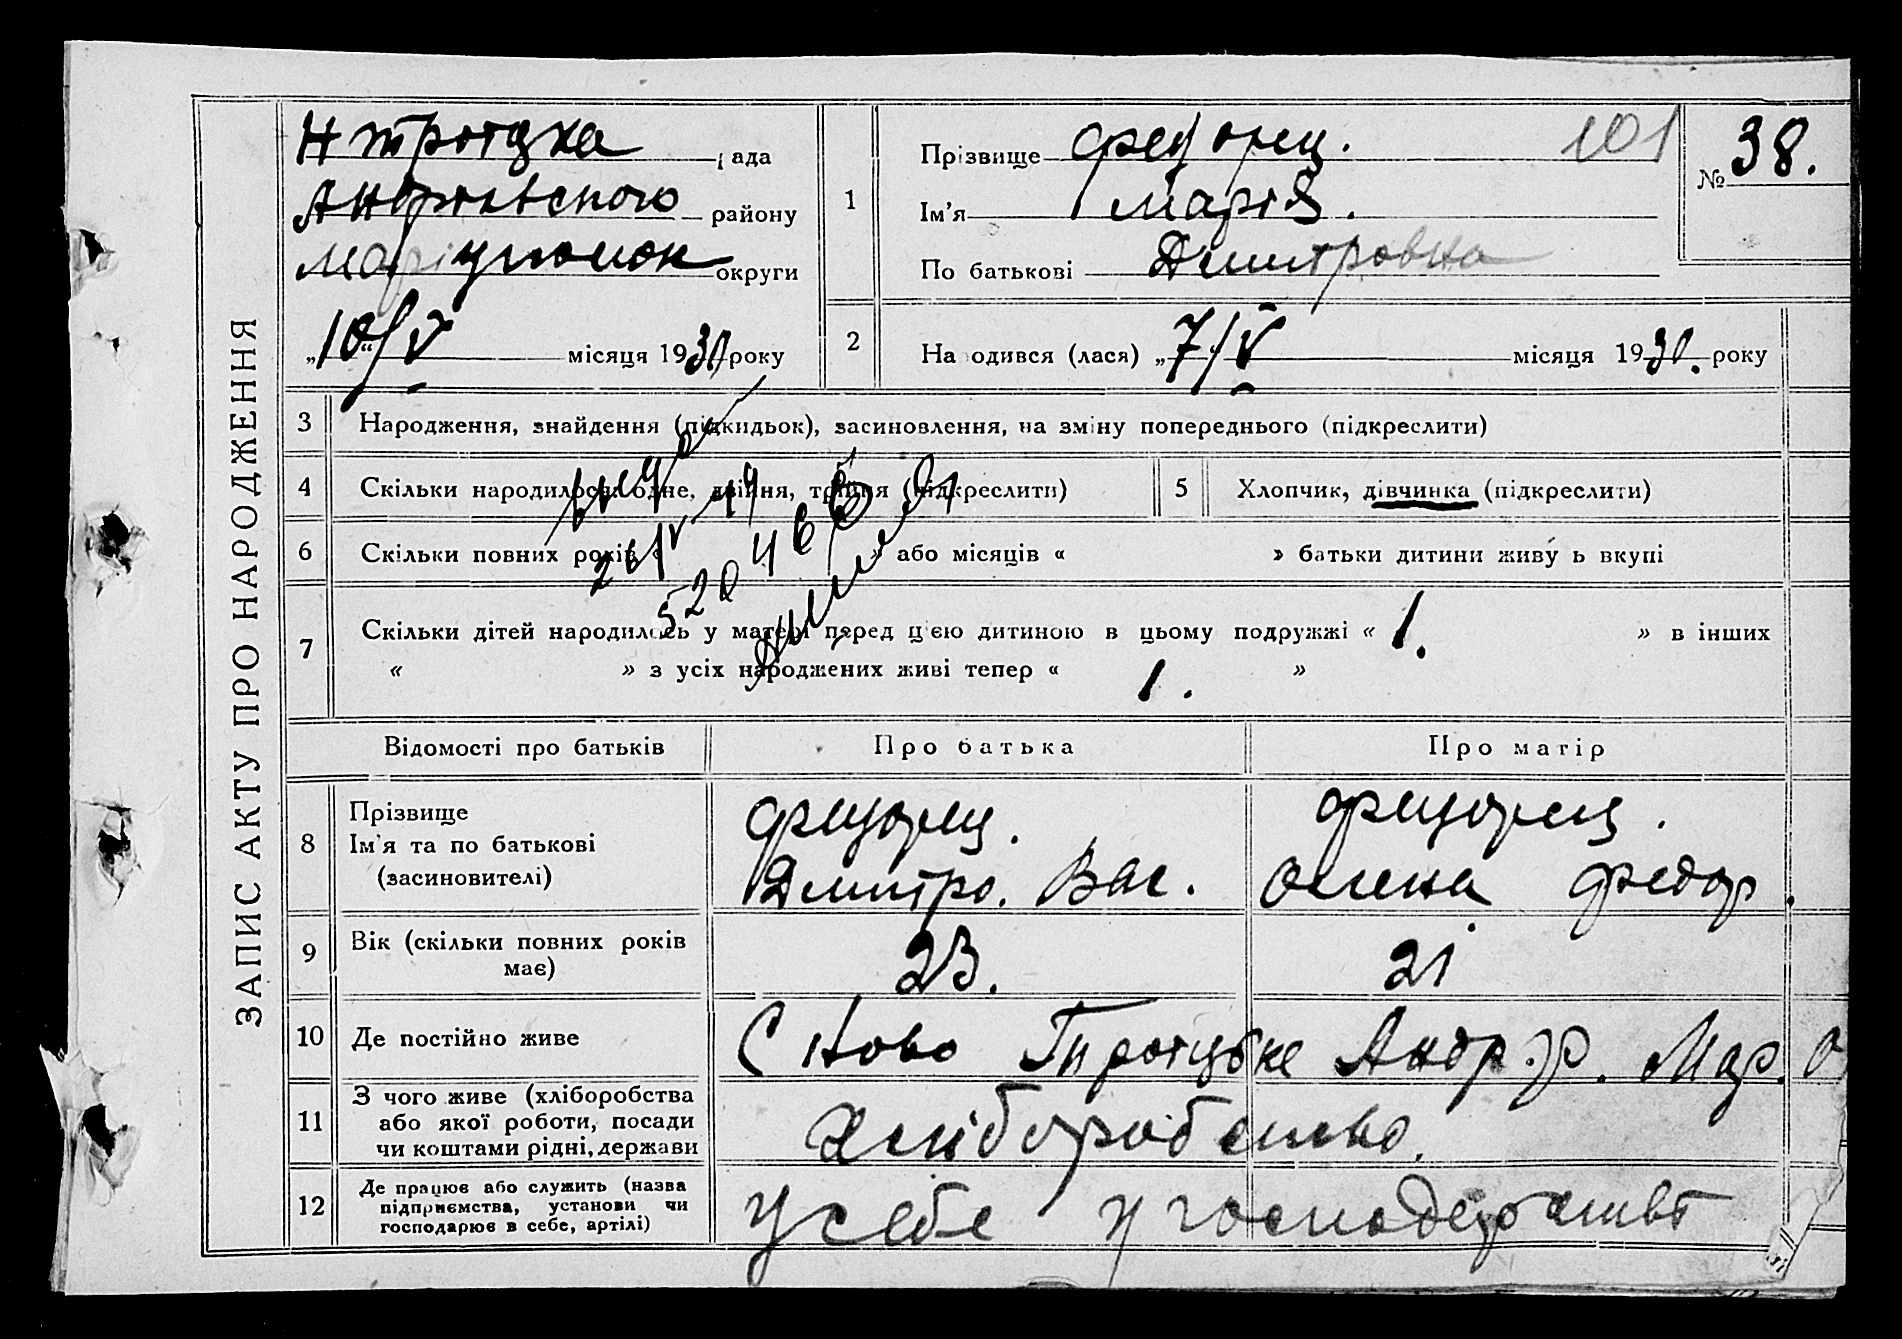 ЗАПИС АКТУ ПРО НАРОДЖЕННЯ
Н троіцка рада
Андріївського району
Маріупольок округи
„10/V“ місяця 1930 року
1
Прізвище Федорец.
Ім’я Марія.
По батькові Дмитровна
101
№ 38.
2
Народився (лася) „7/V місяця 1930. року
3 Народження, знайдення (підкидьок), засиновлення, на зміну попереднього (підкреслити)
4 Скільки народилося: одне, двійня, трійня (підкреслити)
5 Хлопчик, дівчинка (підкреслити)
6 Скільки повних років « » або місяців « » батьки дитини живуть вкупі
7 Скільки дітей народилось у матері перед цією дитиною в цьому подружжі « 1. » в інших
« » з усіх народжених живі тепер « 1. »
520466
Відомості про батьків
Про батька
Про матір
8 Прізвище
Ім’я та по батькові
(засиновителі)
Федорец.
Дмитро. Вас.
Федорец.
Олена Федор.
9 Вік (скільки повних років
має)
23.
21
10 Де постійно живе
С Ново Троіцьке Андр. р. Мар. О
11 З чого живе (хліборобства
або якої роботи, посади
чи коштами рідні, держави
Хліборобство.
12 Де працює або служить (назва
підприємства, установи чи
господарює в себе, артілі)
У себе у господарстві